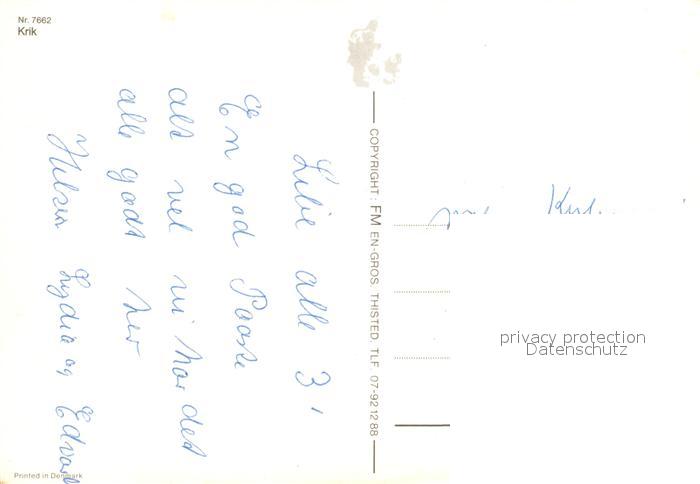 Nr. 7662
Krik
Lilie alle 3'
En god Paaske
alt vel vi har det
alle godt her
Hilsen Lydia og Edvard
COPYRIGHT: FM EN-GROS. THISTED. TLF. 07-92 12 88
privacy protection
Datenschutz
Printed in Denmark